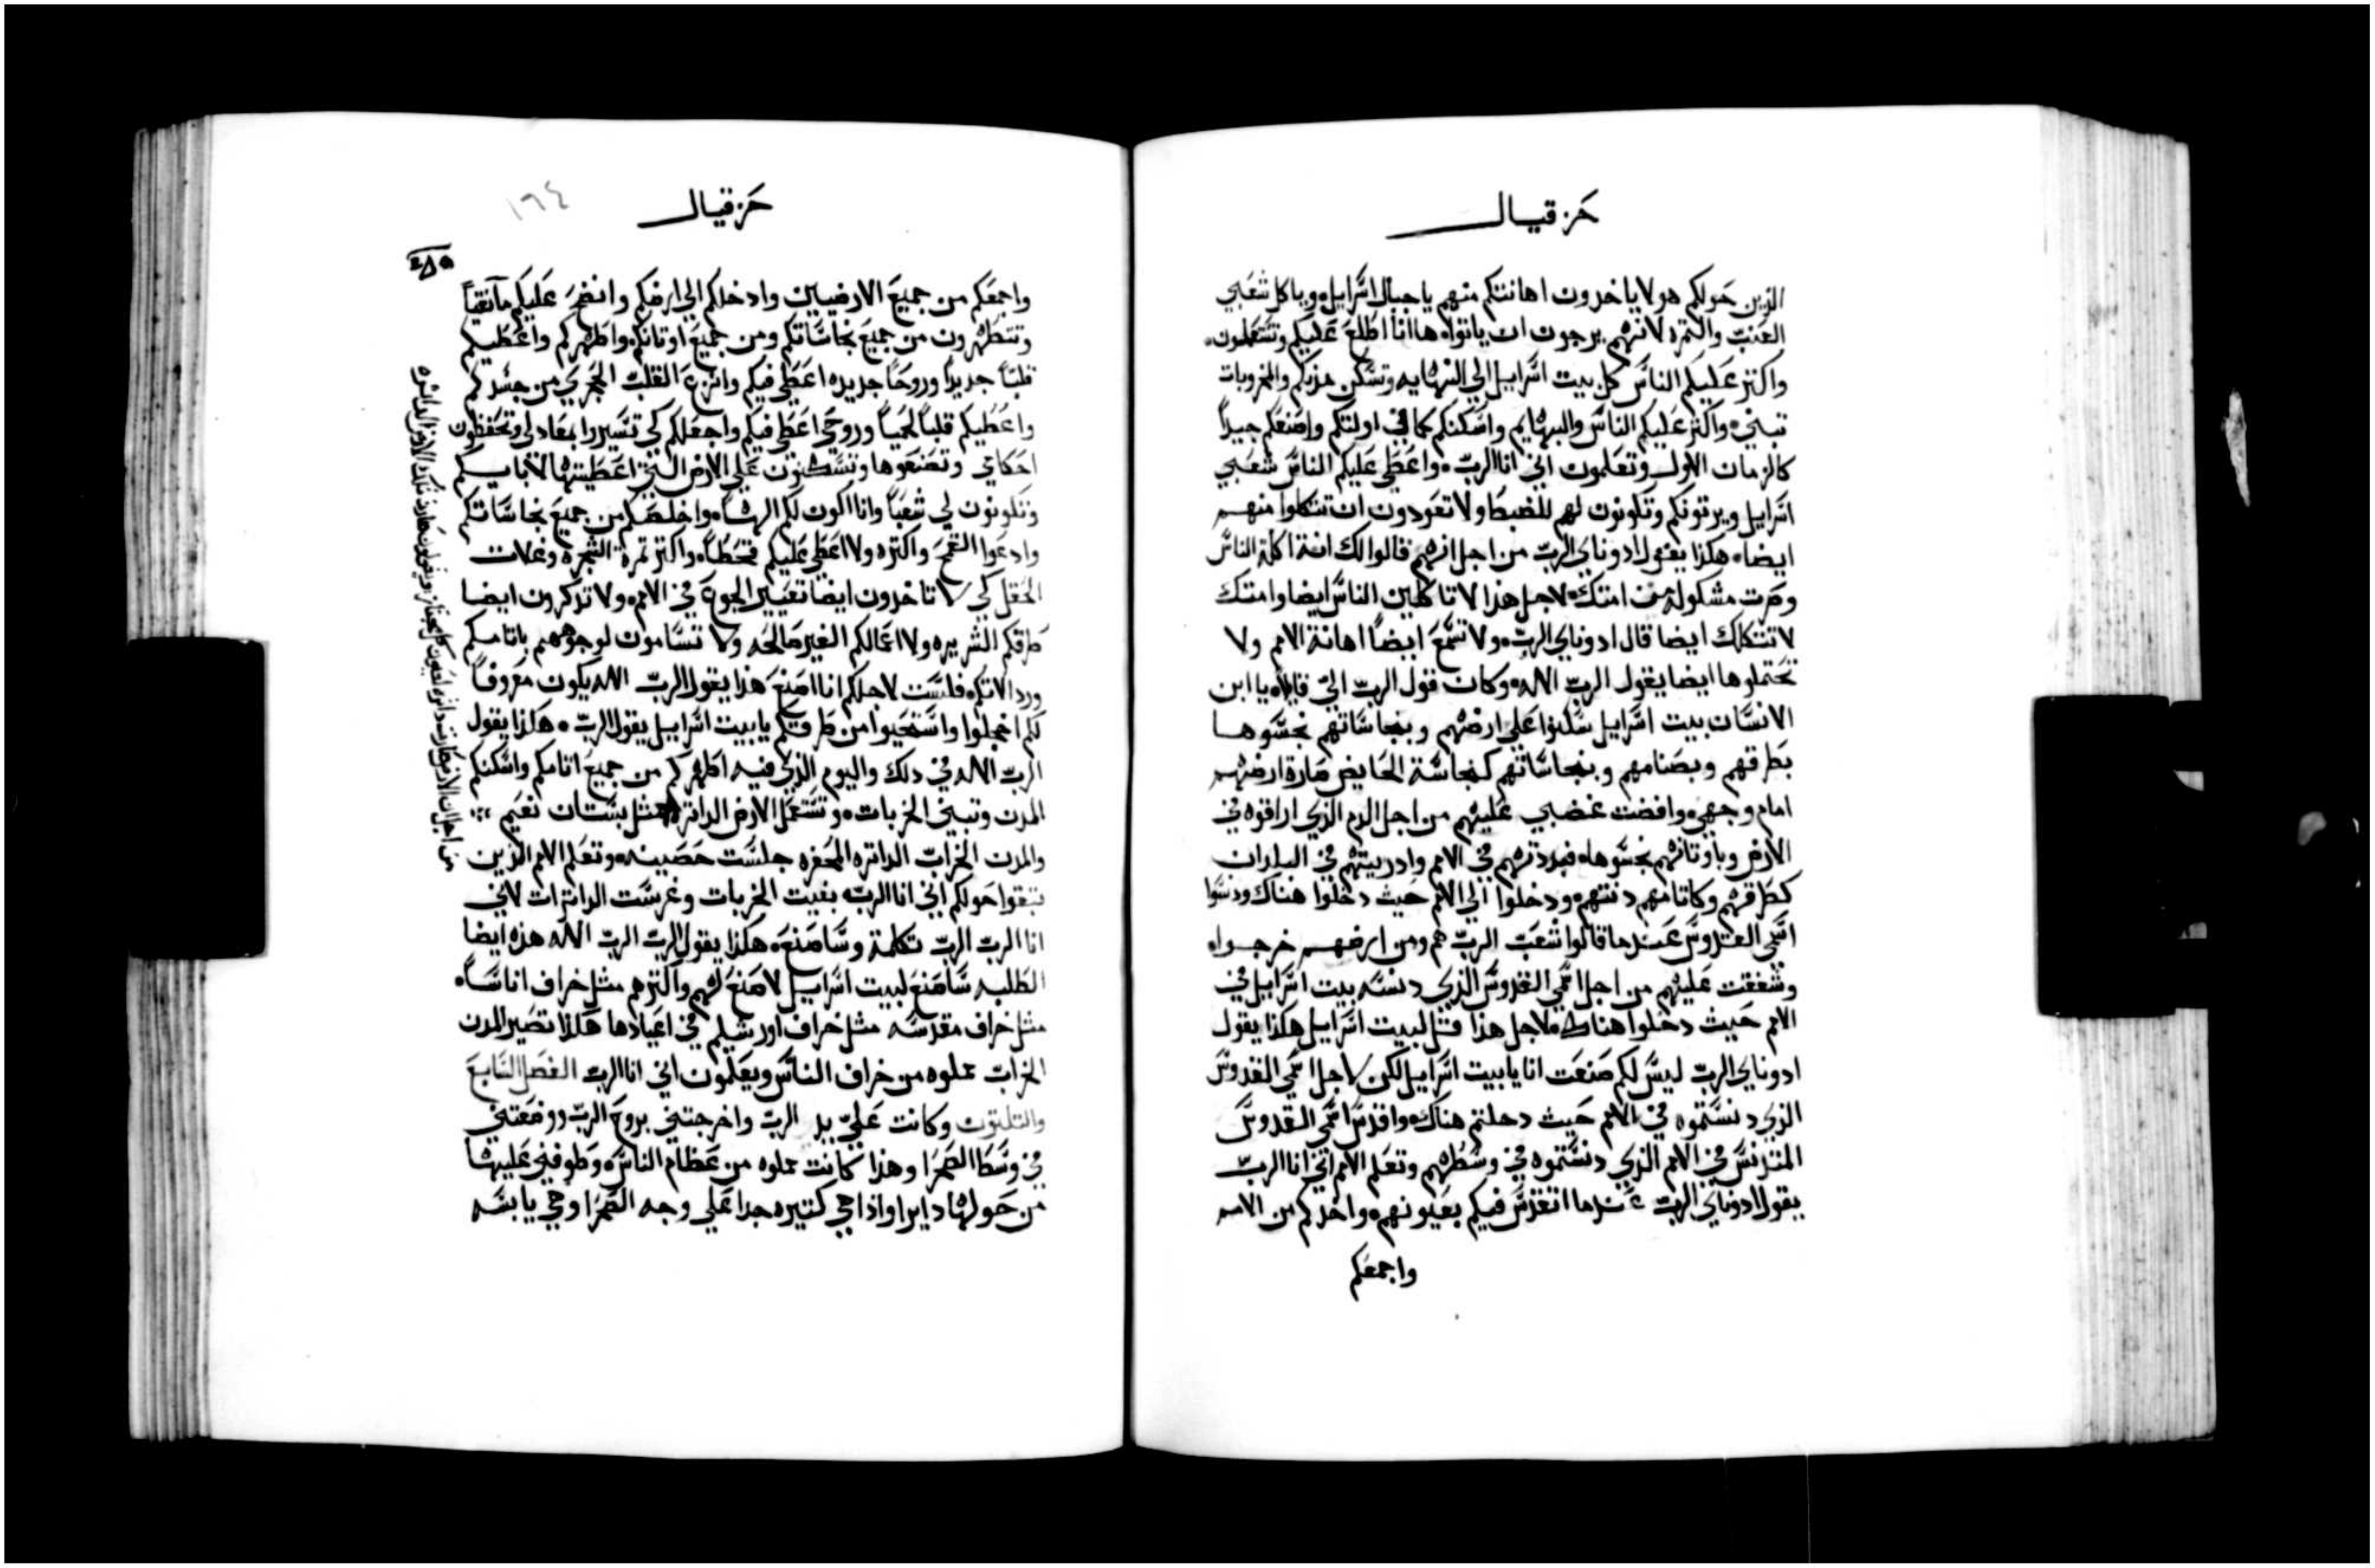 حزقيال
الذين حولكم هولا ياخدون اهانتكم منهم يا جبال اسرايل وياكل شعبي
العنب والثمره لانهم يرجون ان ياتوا هاانا اطلع عليكم وتشتغلون
واكتر عليكم الناس كل بيت اسراييل الي النهايه وتسكن مدنكم والخروبات
تبني واكتر عليكم الناس والبهايم واسكنكم كما في اولتكم واصنعكم جيداً
كالزمان الاول وتعلمون اني انا الرب واعطي عليكم الناس شعبي
اسراييل ويرتونكم وتكونون لهم للضبط ولا تعودون ان تتكلوا منهم
ايضا هكذا يقول ادوناي الرب من اجل انهم قالوا لك انة اكلة الناس
وصرت مشكولة من امتك لاجل هذا لا تاكلين الناس ايضا وامتك
لا تتكلك ايضا قال ادوناي الرب ولا تسمع ايضاً اهانة الامم ولا
تحتملوها ايضا يقول الرب الاله وكان قول الرب الي قايلا يا ابن
الانسان بيت اسراييل سكنوا علي ارضهم وبنجاساتهم نجسوها
بطرقهم وبصنامهم وبنجاساتهم كنجاسة الحايض صارة ارضهم
امام وجهي وافضت غضبي عليهم من اجل الدم الذي ارافوه في
الارض وباوتانهم نجسوها فبددتهم في الامم وادريتهم في البلدان
كطرقهم وكاتامهم دنتهم ودخلوا الي الامم حيث دخلوا هناك ودنسوا
اسمي القدوس عندما قالوا شعب الرب هم ومن ارضهم خرجوا
وشفقت عليهم من اجل اسمي القدوس الذي دنسه بيت اسراييل في
الامم حيث دخلوا هناك لاجل هذا قل لبيت اسراييل هكذا يقول
ادوناي الرب ليس لكم صنعت انا يا بيت اسراييل لكن لاجل اسمي القدوس
الذي دنستموه في الامم حيث دخلتم هناك واقدس اسمي القدوس
المتدنس في الامم الذي دنستموه في وسطهم وتعلم الامم اني انا الرب
يقول ادوناي الرب عندما اتقدس فيكم بعيونهم واخدكم من الامم
واجمعكم
حزقيال
١٦٤
واجمعكم من جميع الارضيين وادخلكم الي ارضكم وانضح عليكم مآ نقياً
وتتطهرون من جميع نجاساتكم ومن جميع اوتانكم واطهركم واعطيكم
قلباً جديداً وروحاً جديده اعطي فيكم وانزع القلب الحجري من جسدكم
واعطيكم قلباً لحمياً وروحي اعطي فيكم واجعلكم كي تسيروا بمعادلي وتحفظون
احكامي وتصنعوها وتسكنون علي الارض التي اعطيتها لابايكم
وتكونون لي شعباً وانا اكون لكم الهاً واخلصكم من جميع نجاساتكم
وادعوا القمح واكتره ولا اعطي عليكم قحطاً واكتر ثمرة الشجرة وغلات
الحقل كي لا تاخدون ايضا تعيير الجوع في الامم ولا تدكرون ايضا
طرقكم الشريره ولا اعمالكم الغير صالحه ولا تسامون لوجوههم باتامكم
وردالاتكم فليست لاجلكم انا اصنع هذا يقول الرب الاله يكون معروفاً
لكم اخجلوا واستحيوا من طرقكم يا بيت اسراييل يقول الرب هكذا يقول
الرب الاله في دلك واليوم الذي فيه اطهركم من جميع اتامكم واسكنكم
المدن وتبني الخربات وتشتغل الارض الداتره مثل بستان نعيم
والمدن الخراب الداتره المحفره جلست حصينه وتعلم الامم الذين
تبقوا حولكم اني انا الرب بنيت الخربات وغرست الداترات لاني
انا الرب الرب تكلمة وساصنع هكذا يقول الرب الرب الاله هذه ايضا
الطلبه ساصنع لبيت اسراييل لاصنع لهم واكترهم مثل خراف اناساً
مثل خراف مقدسه مثل خراف اورشليم في اعيادها هكذا تصير المدن
الخراب مملوه من خراف الناس ويعلمون اني انا الرب الفصل السابع
والتلتون وكانت علي يد الرب واخرجتني بروح الرب ووضعتني
في وسط الصحرا وهذا كانت مملوه من عظام الناس وطوفني عليها
من حولها دايرا واذا هي كتيره جدا علي وجه الصحرا وهي يابسه